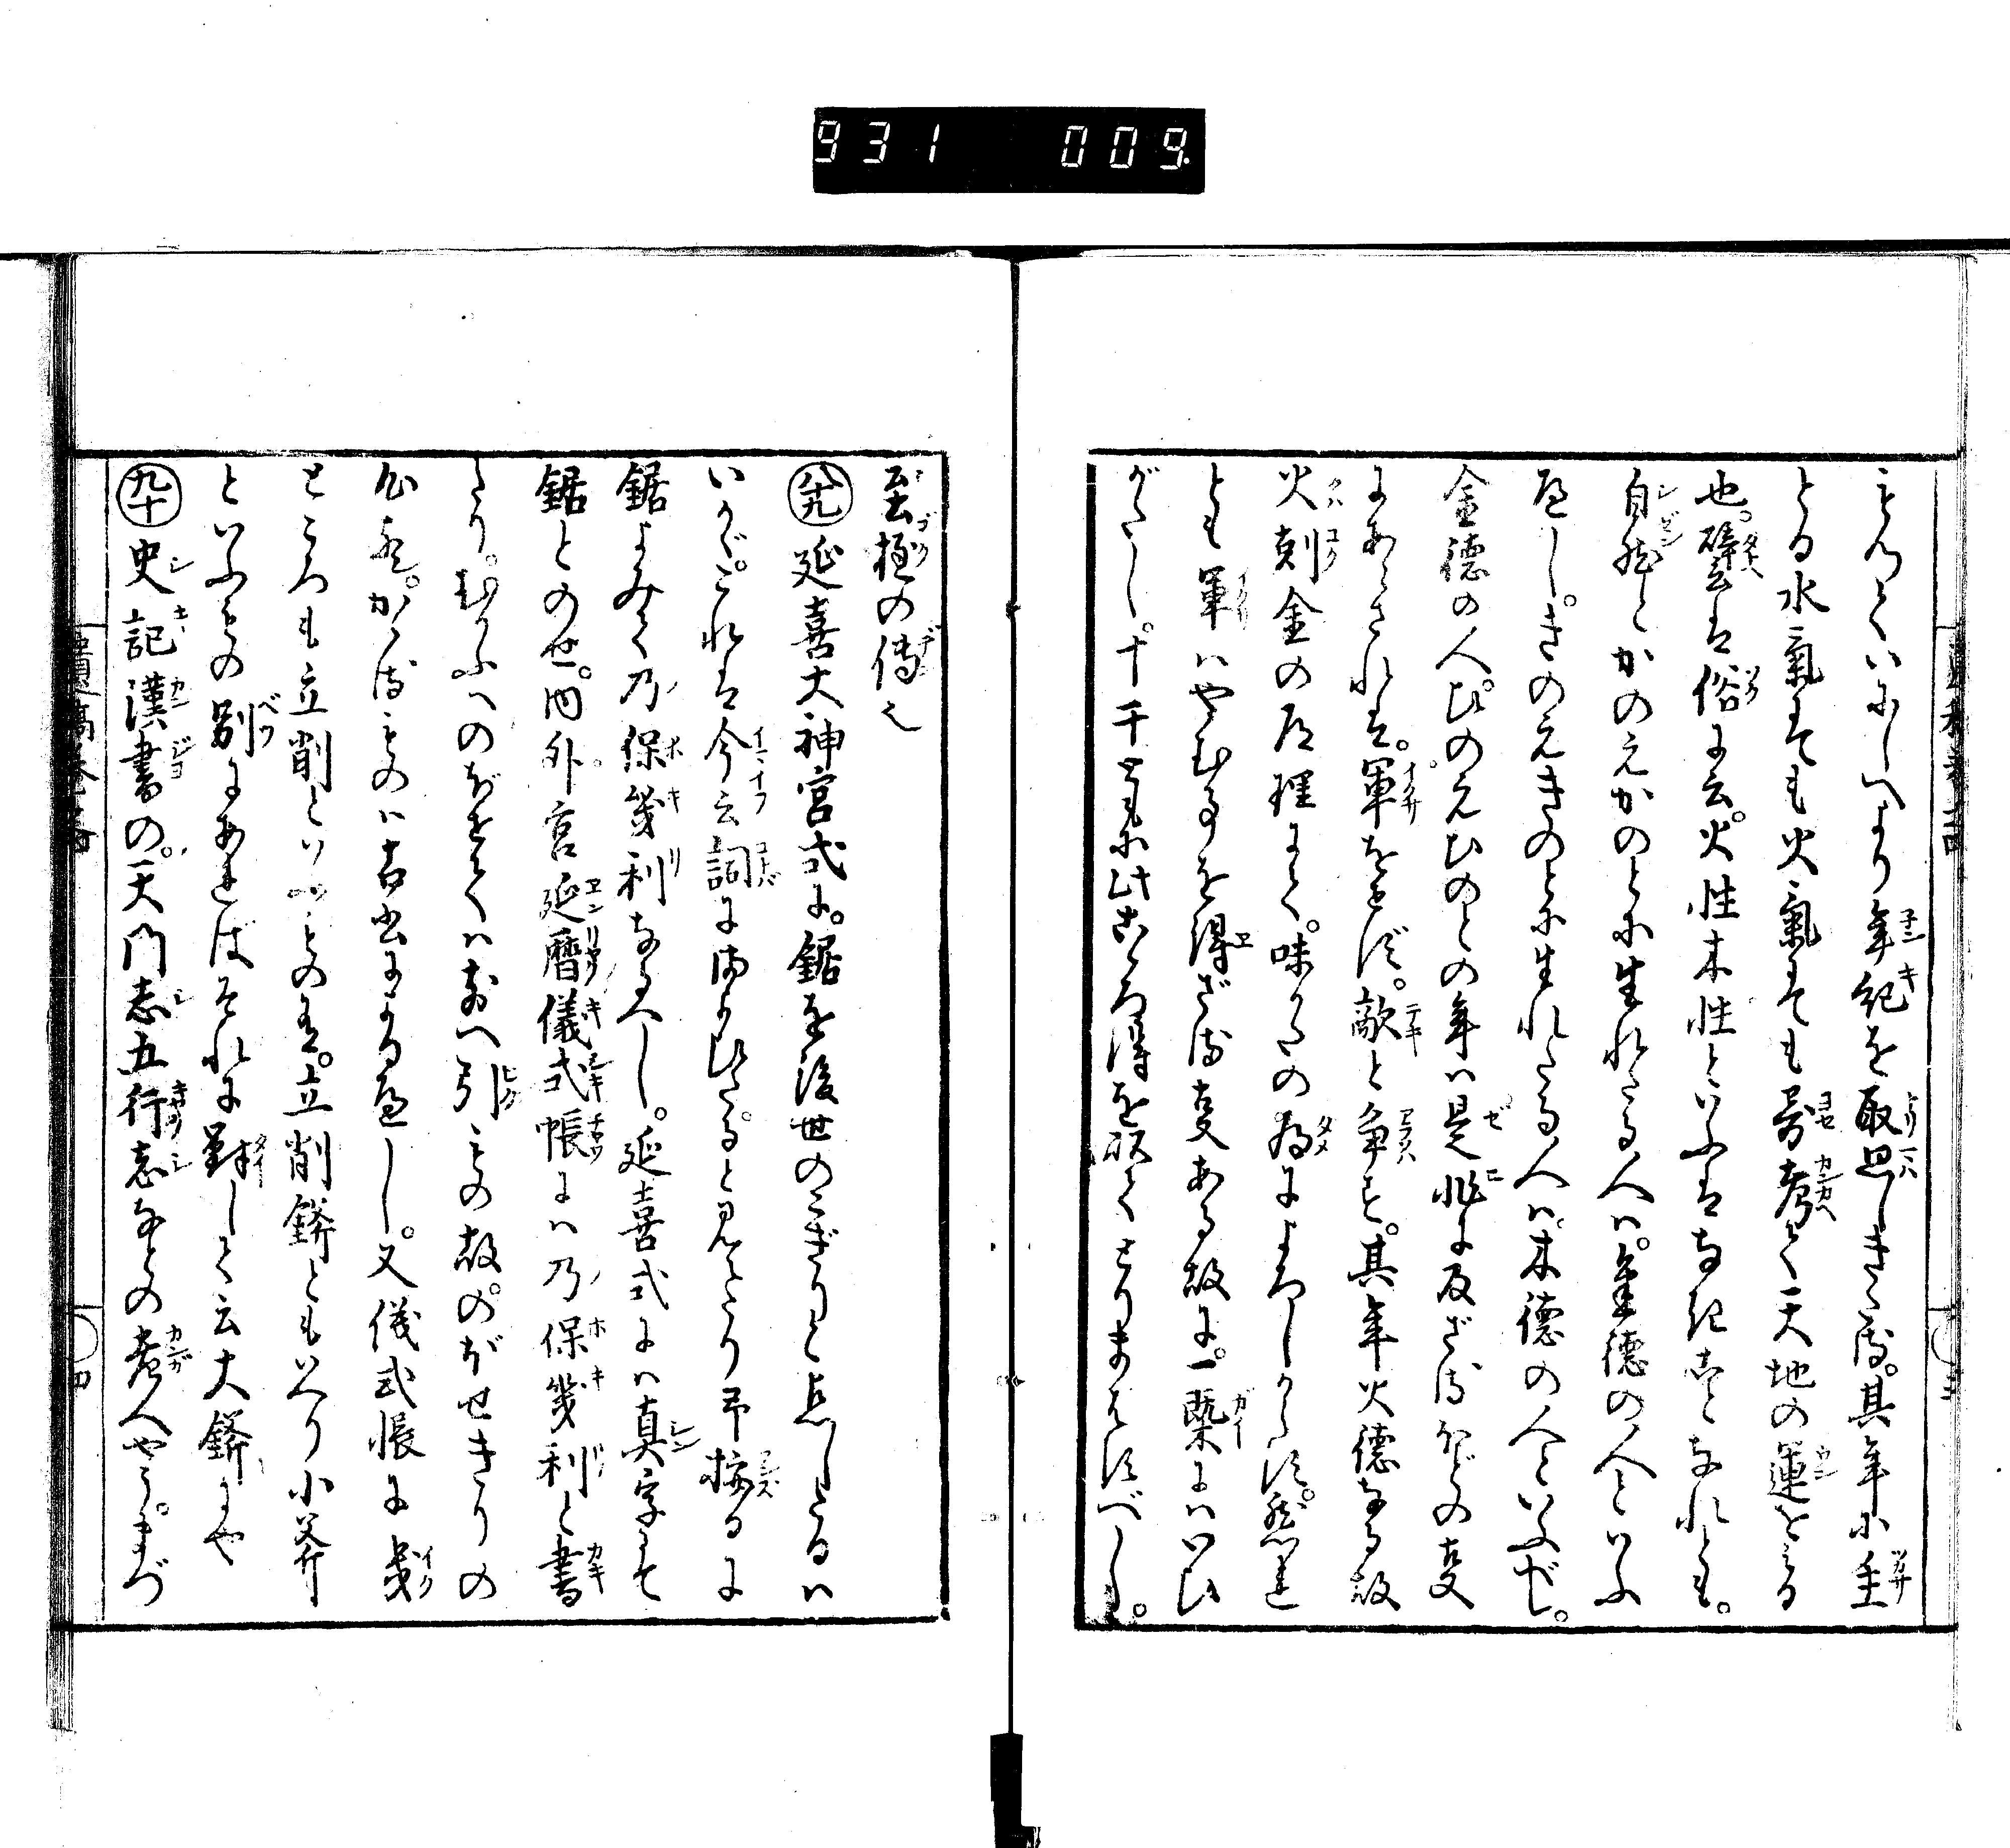 931 009
もつていにしへより年紀を取回しきたる。其年に主
とる水氣にても火氣にても昜考て天地の運をしる
也。譬は俗に云。火性木性といふはなき事なれとも。
自然とかのえかのとに生れたる人は。金徳の人といふ
べし。きのえきのとに生れたる人は。木徳の人といふべし。
金徳の人。ひのえひのとの年は是非に及ざるほどの変
にあらされは。軍をせず。敵と争はす。其年火徳なる故
火剋金の道理にて。味かたの為によろしからず。然れ
とも軍はやむ事を得ざる変ある故に。一槩にはいひ
がたし。十干ともに此こゝろ得を以てとりまはすべし。
至極の傳也
八十九 延喜大神宮式に。鋸を後世のこぎりと点したるは
いかゞ。これは今云詞にまよひたると見えたり予按るに
鋸よみて乃保幾利なるへし。延喜式には真字にて
鋸とのせ。内外宮延暦儀式帳には乃保幾利と書
たり。むかふへのぼせては前へ引もの故。のぼせきりの
心歟。かゝるものは古書によるべし。又儀式帳に幾
ところも立削といふもの有。立削錛ともいへり小斧
といふもの別にあればそれに對して云大錛にや
九十 史記漢書の。天門志五行志なとの考へやう。まづ